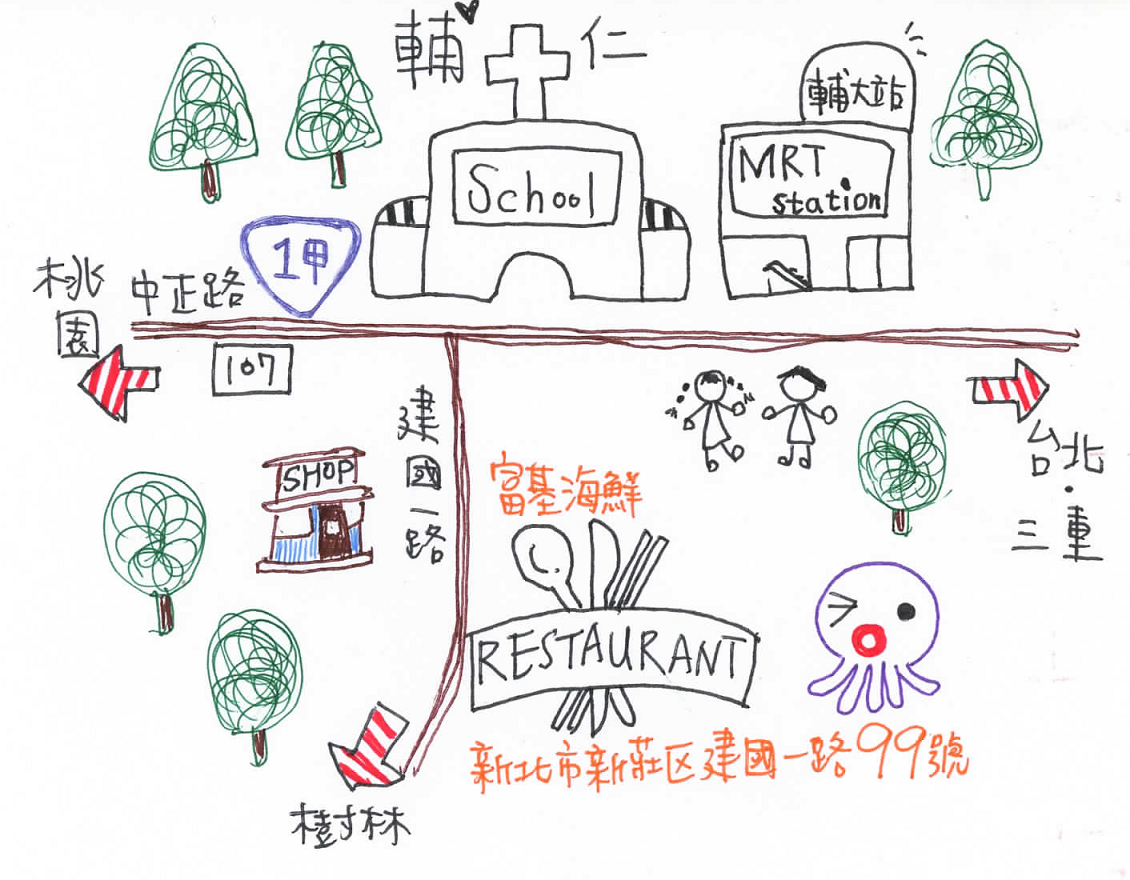 輔仁
School
輔大站
MRT
station
桃園
中正路
1甲
107
建國一路
台北・三重
SHOP
富基海鮮
RESTAURANT
新北市新莊区建國一路99號
樹林